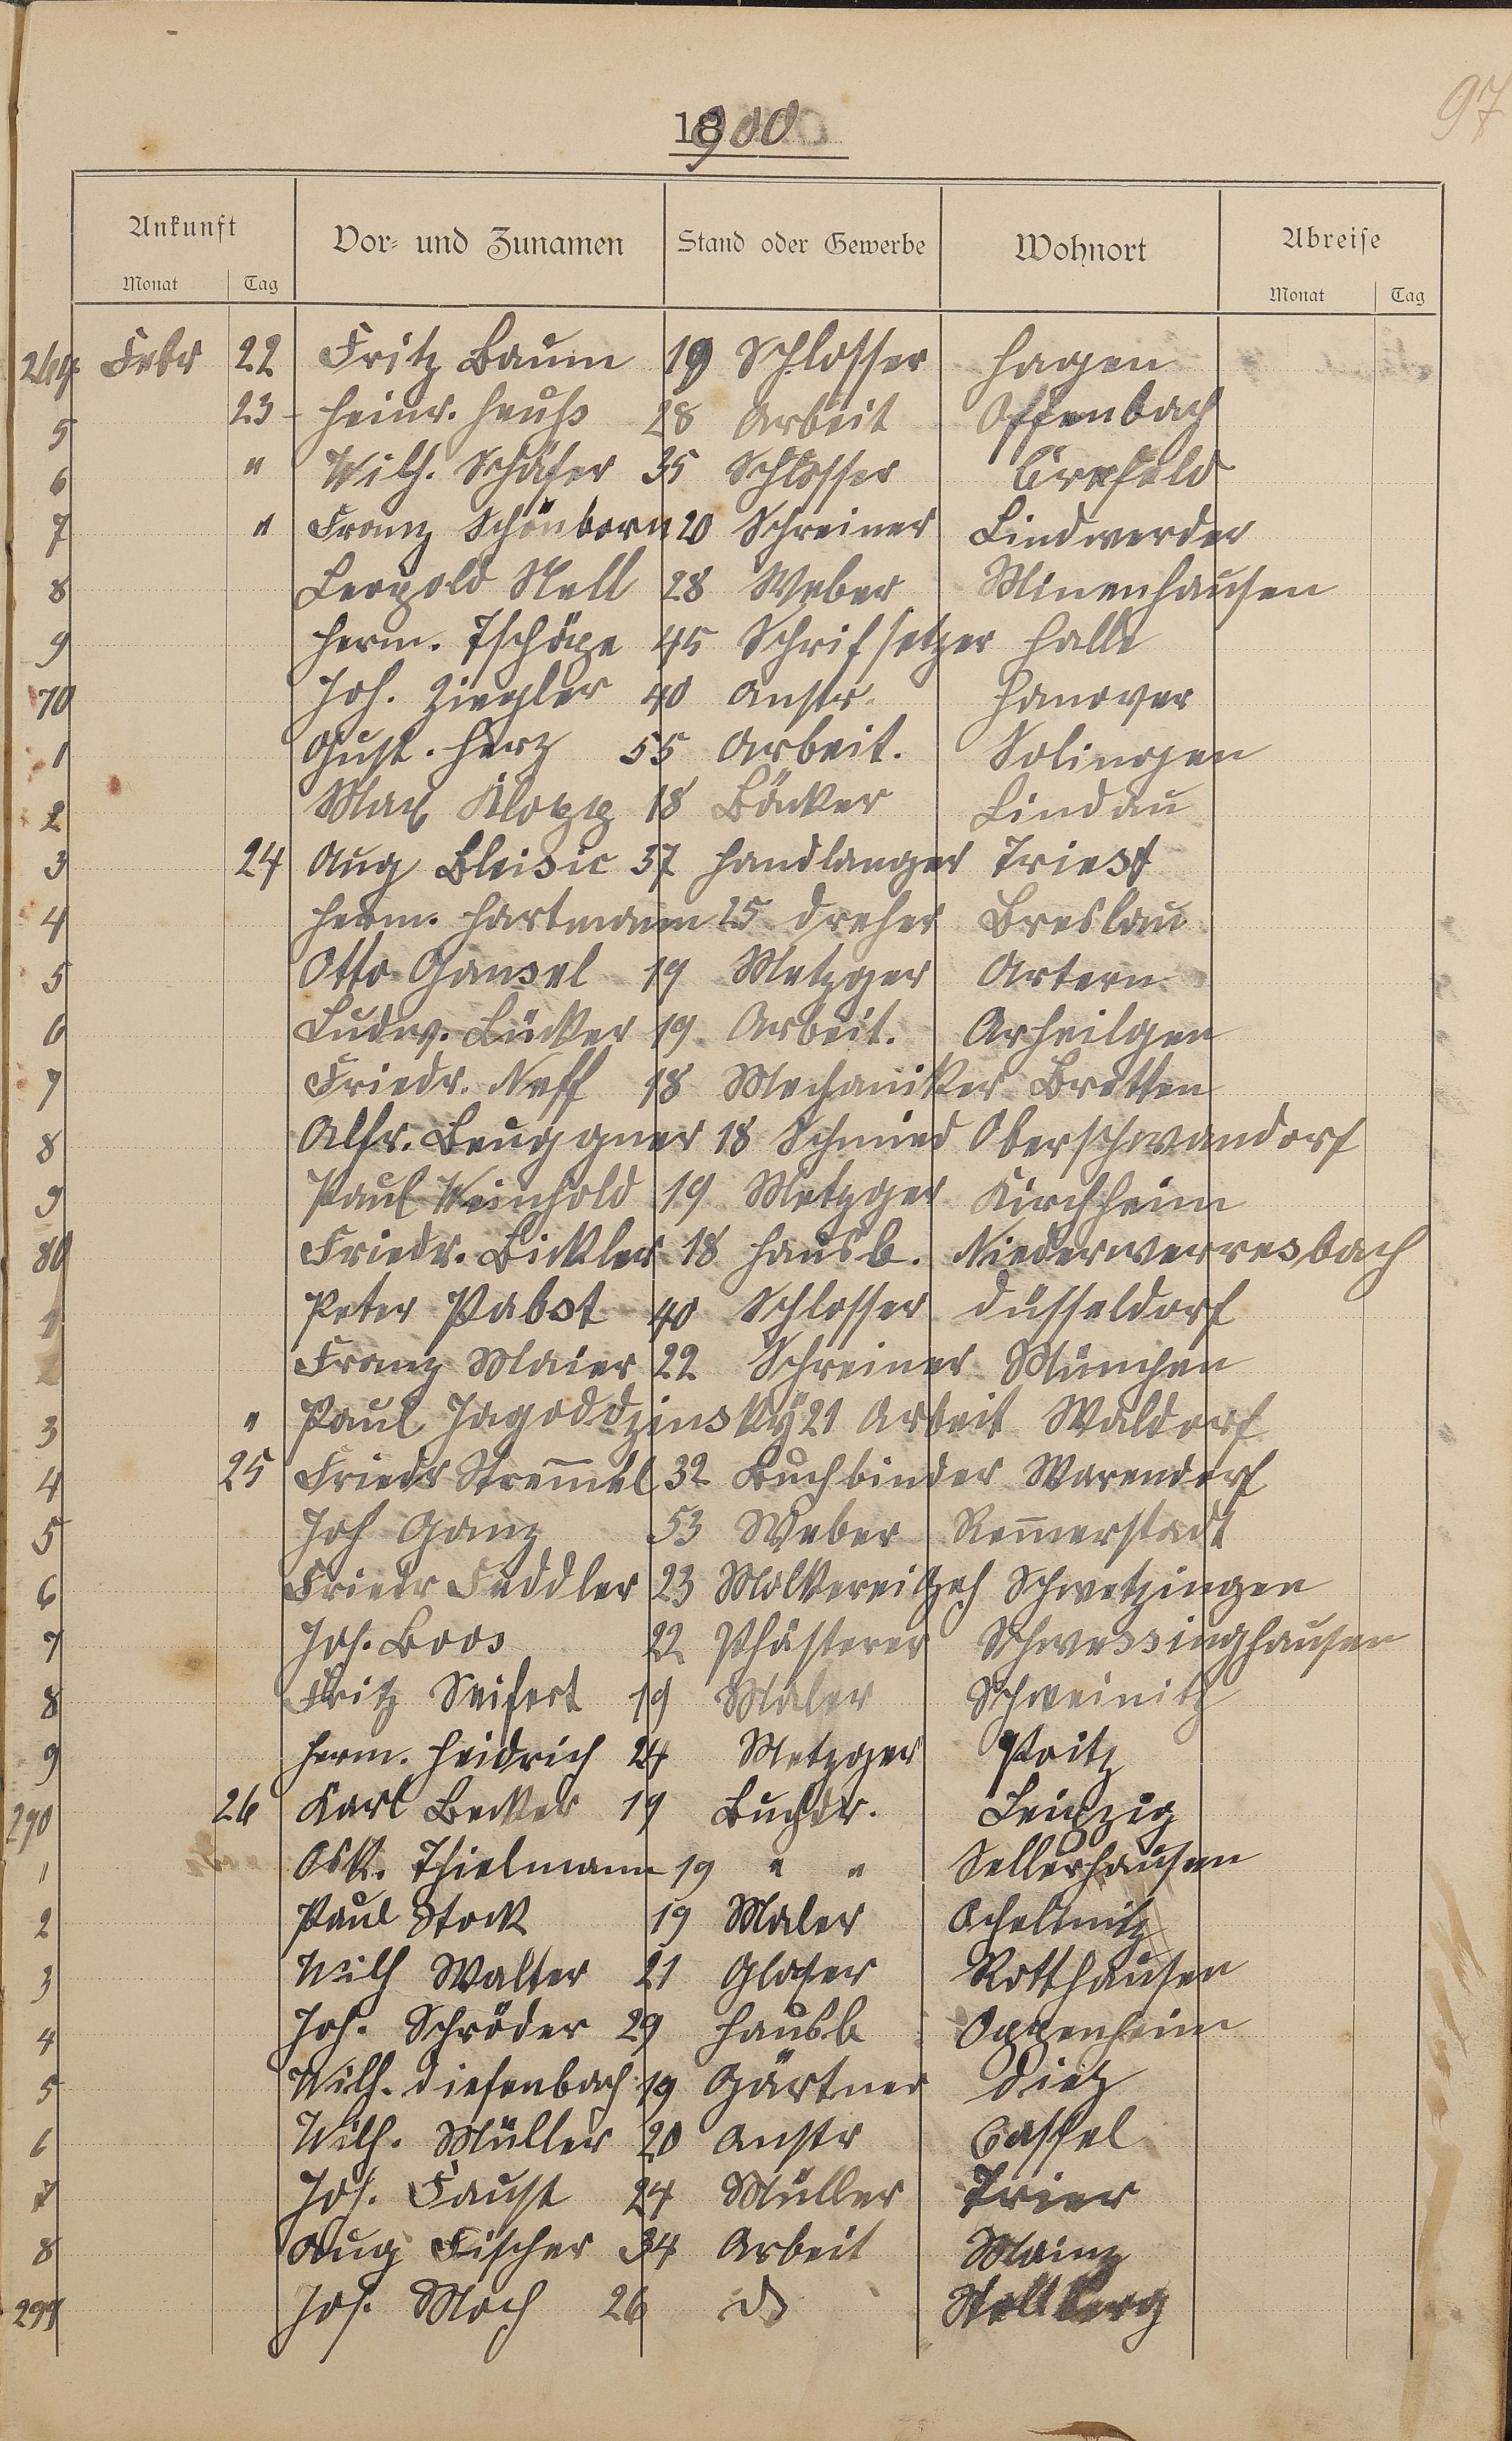 97
1900
Ankunft Vor- und Zunamen Stand oder Gewerbe Wohnort Abreise
Monat Tag Monat Tag
264 Febr 22 Fritz Baum 19 Schlosser Hagen
5 23 Heinr. Heuß 28 Arbeit Offenbach
6 " Wilh. Schäfer 35 Schlosser Crefeld
7 " Franz Schönborn 20 Schreiner Lindwerder
8 Leopold Nell 28 Weber Minenhausen
9 Herm. Tschöpe 45 Schrifsetzer Halle
70 Joh. Ziegler 40 Anstr. Hanover
1 Gust. Herz 55 Arbeit. Solingen
2 Max Klopp 18 Bäcker Lindau
3 24 Aug Bleisic 37 Handlanger Triest
4 Herm. Hartmann 25 Dreher Breslau
5 Otto Gansel 19 Metzger Artern
6 Ludw. Lücker 19 Arbeit. Arheilgen
7 Friedr. Neff 18 Mechaniker Bretten
8 Alfr. Beuggner 18 Schmied Oberschwandorf
9 Paul Weinhold 19 Metzger Kirchheim
80 Friedr. Bickler 18 Hausb. Niederwerresbach
1 Peter Pabst 40 Schlosser Düsseldorf
2 Franz Maier 22 Schreiner München
3 " Paul Jagoddzinsky 21 Arbeit Waldorf
4 25 Friedr Strem̅el 32 Buchbinder Warendorf
5 Joh Ganz 53 Weber Rem̅erstadt
6 Friedr Feddler 23 Molkereigeh Schwetzingen
7 Jos. Boos 22 Pflästerer Schwessinghausen
8 Fritz Seifert 19 Maler Schweinitz
9 Herm. Heidrich 24 Metzger Poitz
290 26 Karl Becker 19 Buchdr. Leipzig
1 Osk. Thielmann 19 " " Sellerhausen
2 Paul Stock 19 Maler Ochelmitz
3 Wilh Walter 21 Glaser Rotthausen
4 Joh. Schröder 29 Hausb Oppenheim
5 Wilh. Diefenbach 19 Gärtner Dietz
6 Wilh. Müller 20 Anstr Cassel
7 Jos. Faust 24 Müller Trier
8 Aug Fischer 34 Arbeit Mainz
299 Jos. Moch 26 do Stollberg